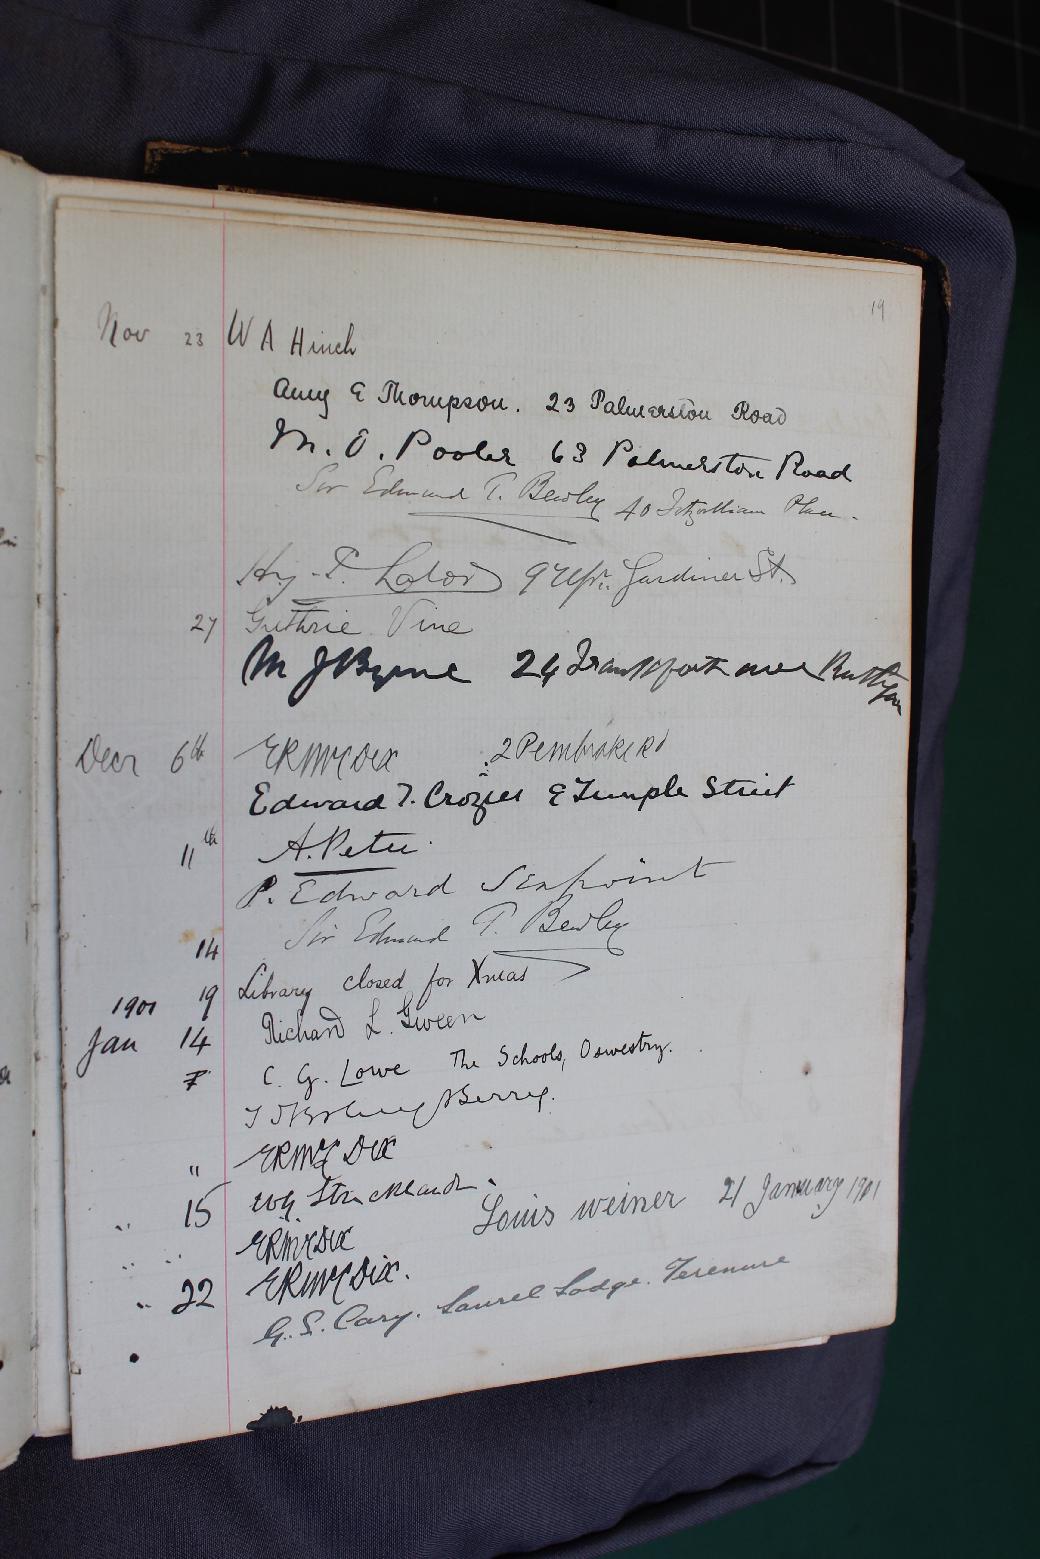 19
Nov 23 W A Hinch
Amy E Thompson. 23 Palmerston Road
M. O. Pooler 63 Palmerston Road
Sir Edmund T. Bewley 40 Fitzwilliam Place.
Hy. T. Lalor 9 Upr. Gardiner St.
27 Guthrie Vine
M J Byrne 24 Frankfort ave Rathgar
Decr 6th ERMcC Dix 2 Pembroke Rd
Edward T. Crozier 9 Temple Street
11th A. Peter
P. Edward
14 Sir Edmund T. Bewley
19 Library closed for Xmas
1901
Jan 14 Richard L. Green
7 C. G. Lowe The Schools, Oswestry.
Berry.
" ERMcC Dix
" 15 WG Strickland.
" " ERMcC Dix
Louis weiner 21 January 1901
" 22 ERMcC Dix.
G. S. Cary. Laurel Lodge. Terenure